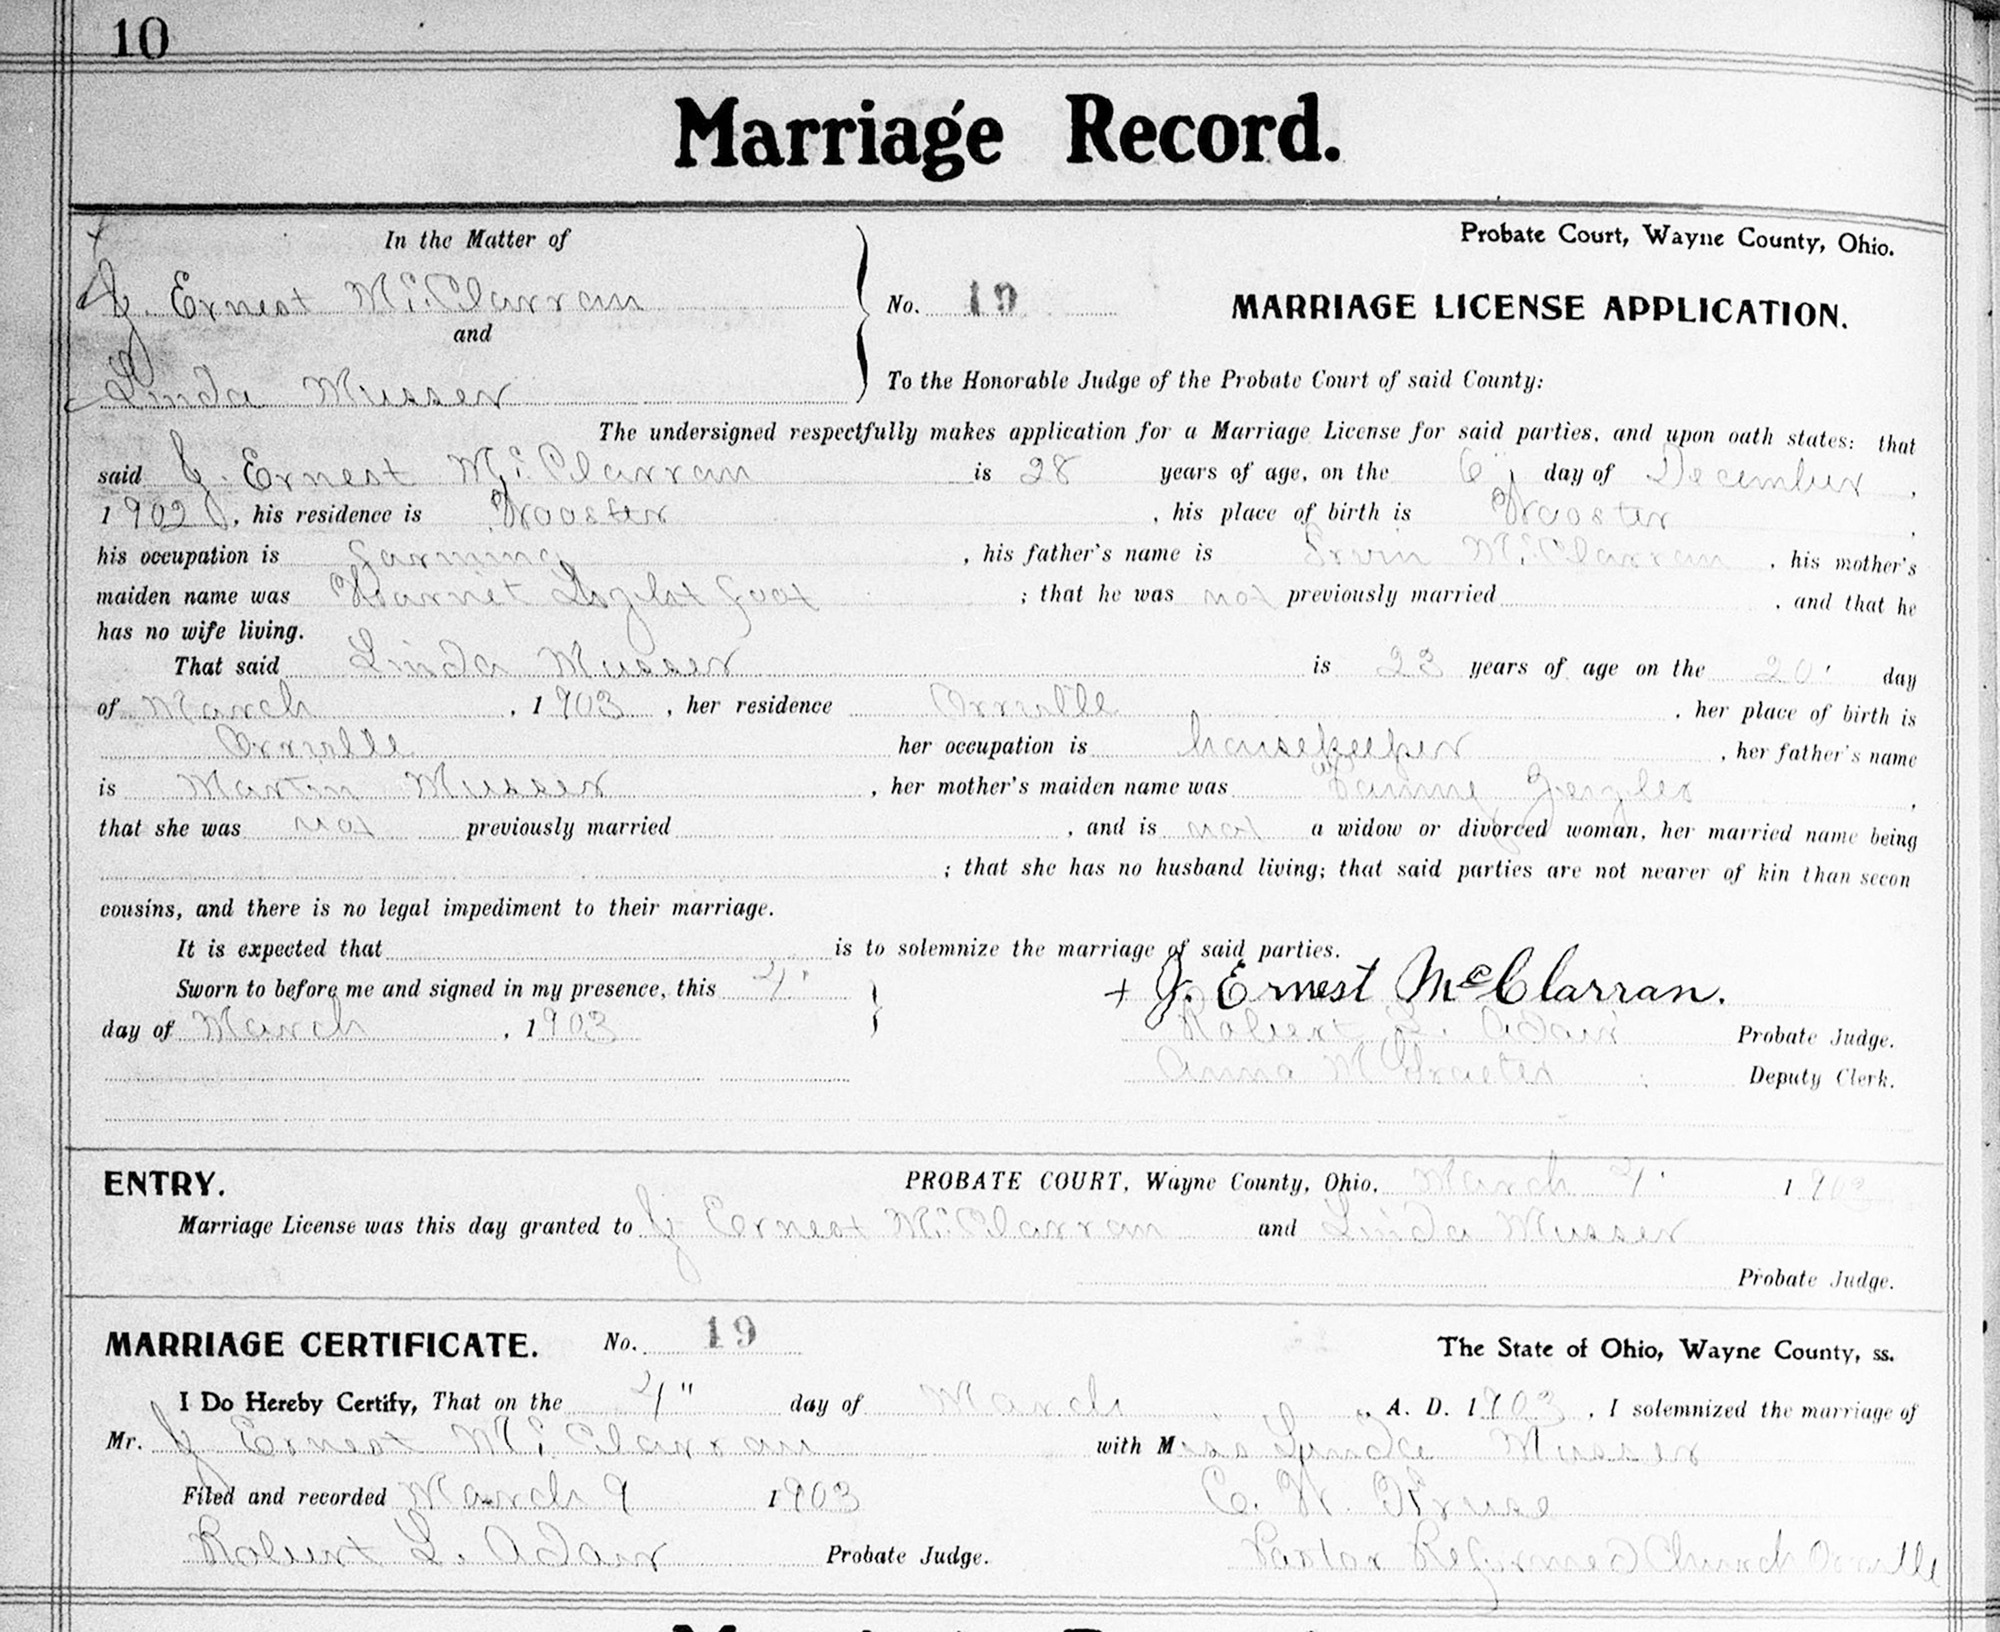 10
Marriage Record.
In the Matter of
J. Ernest McClarran
and
Linda Musser
Probate Court, Wayne County, Ohio.
No. 19 MARRIAGE LICENSE APPLICATION.
To the Honorable Judge of the Probate Court of said County:
The undersigned respectfully makes application for a Marriage License for said parties, and upon oath states: that
said J. Ernest McClarran is 28 years of age, on the 6" day of December ,
1902, his residence is Wooster , his place of birth is Wooster ,
his occupation is farming , his father's name is Irvin McClarran , his mother's
maiden name was Harriet Light foot ; that he was not previously married , and that he
has no wife living.
That said Linda Musser is 23 years of age on the 20" day
of March , 1903 , her residence Orrville , her place of birth is
Orrville her occupation is housekeeper , her father's name
is Martin Musser , her mother's maiden name was Fanny Zeigler ,
that she was not previously married , and is not a widow or divorced woman, her married name being
; that she has no husband living; that said parties are not nearer of kin than secon
cousins, and there is no legal impediment to their marriage.
It is expected that is to solemnize the marriage of said parties.
Sworn to before me and signed in my presence, this 4" + J. Ernest McClarran.
day of March , 1903 Robert L. Adair Probate Judge.
Anna M Deputy Clerk.
ENTRY. PROBATE COURT, Wayne County, Ohio, March 4" 1903
Marriage License was this day granted to J Ernest McClarran and Linda Musser
Probate Judge.
MARRIAGE CERTIFICATE. No. 19 The State of Ohio, Wayne County, ss.
I Do Hereby Certify, That on the 4" day of March , A. D. 1903 , I solemnized the marriage of
Mr. J Ernest McClarran with Miss Linda Musser
Filed and recorded March 9 1903 C. W. Kruse
Robert L. Adair Probate Judge. Pastor Reformed Church Orrville